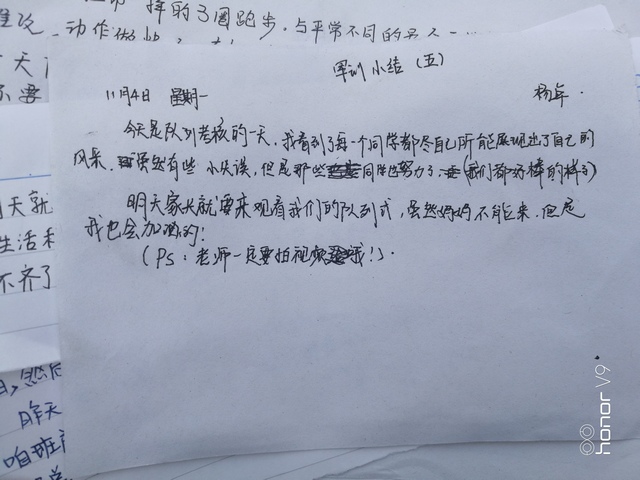 军训小结（五）
11月4日 星期一 杨年.
今天是队列考核的一天，我看到了每一个同学都尽自己所能展现出了自己的
风采.虽然有些小失误，但是那些同学也努力了（我们都好棒的样子）
明天家长就要来观看我们的队列式，虽然妈妈不能来.但是
我也会加油的！
（PS：老师一定要拍视频哦！）.
动作做
摔的3圈跑步.与平常不同的是
天
不要
天就
生活和
不齐了
然后
昨天
咱班
honor V9